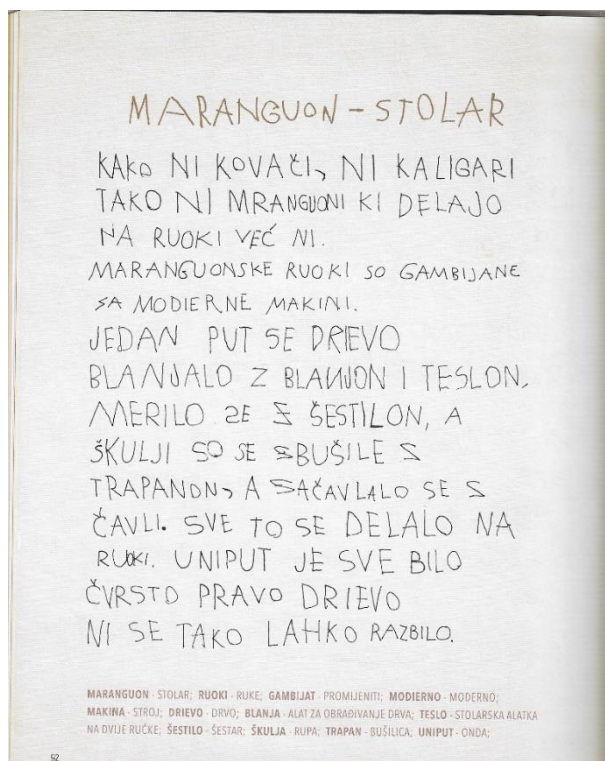 MARANGUON - STOLAR
KAKO NI KOVAČI, NI KALIGARI
TAKO NI MRANGUONI KI DELAJO
NA RUOKI VEĆ NI.
MARANGUONSKE RUOKI SO GAMBIJANE
SA MODIERNE MAKINI.
JEDAN PUT SE DRIEVO
BLANJALO Z BLANJON I TESLON,
MERILO SE S ŠESTILON, A
ŠKULJI SO SE SBUŠILE S
TRAPANON, A SAČAVLALO SE S
ČAVLI. SVE TO SE DELALO NA
RUOKI. UNIPUT JE SVE BILO
ČVRSTO PRAVO DRIEVO
NI SE TAKO LAHKO RAZBILO.
MARANGUON - STOLAR; RUOKI - RUKE; GAMBIJAT - PROMIJENITI; MODIERNO - MODERNO;
MAKINA - STROJ; DRIEVO - DRVO; BLANJA - ALAT ZA OBRAĐIVANJE DRVA; TESLO - STOLARSKA ALATKA
NA DVIJE RUČKE; ŠESTILO - ŠESTAR; ŠKULJA - RUPA; TRAPAN - BUŠILICA; UNIPUT - ONDA;
52